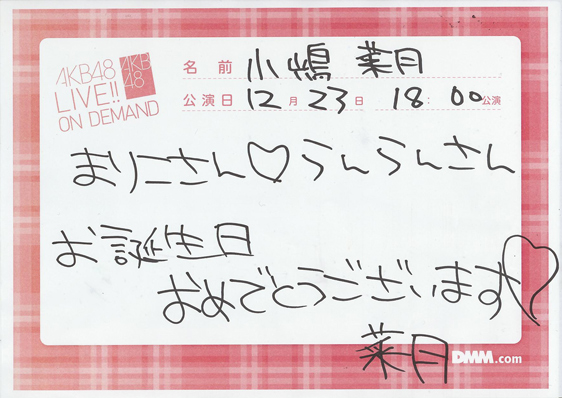 AKB48
LIVE!!
ON DEMAND
AKB
48
名前 小嶋 菜月
公演日 12月23日 18:00公演
まりこさん♡らんらんさん
お誕生日
おめでとうございます♡
菜月
DMM.com